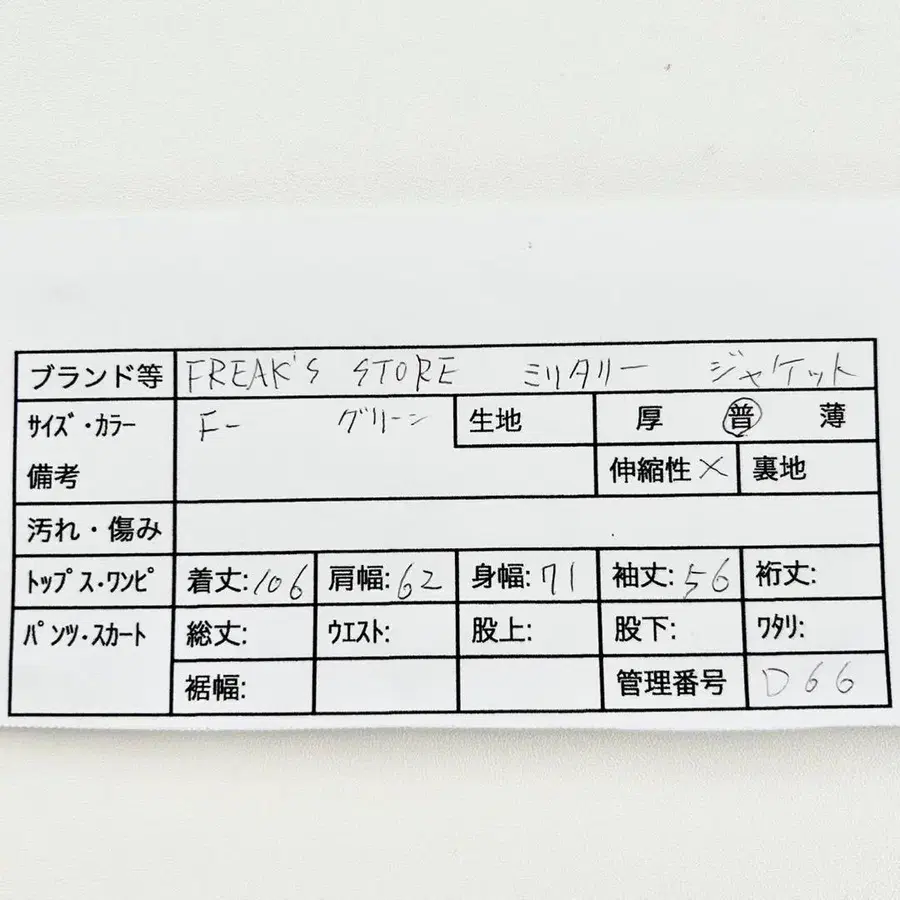 ブランド等 FREAK'S STORE ミリタリー ジャケット
サイズ・カラー F- グリーン 生地 厚 普 薄
備考 伸縮性 × 裏地
汚れ・傷み
トップス・ワンピ 着丈:106 肩幅:62 身幅:71 袖丈:56 裄丈:
パンツ・スカート 総丈: ウエスト: 股上: 股下: ワタリ:
裾幅: 管理番号 D66